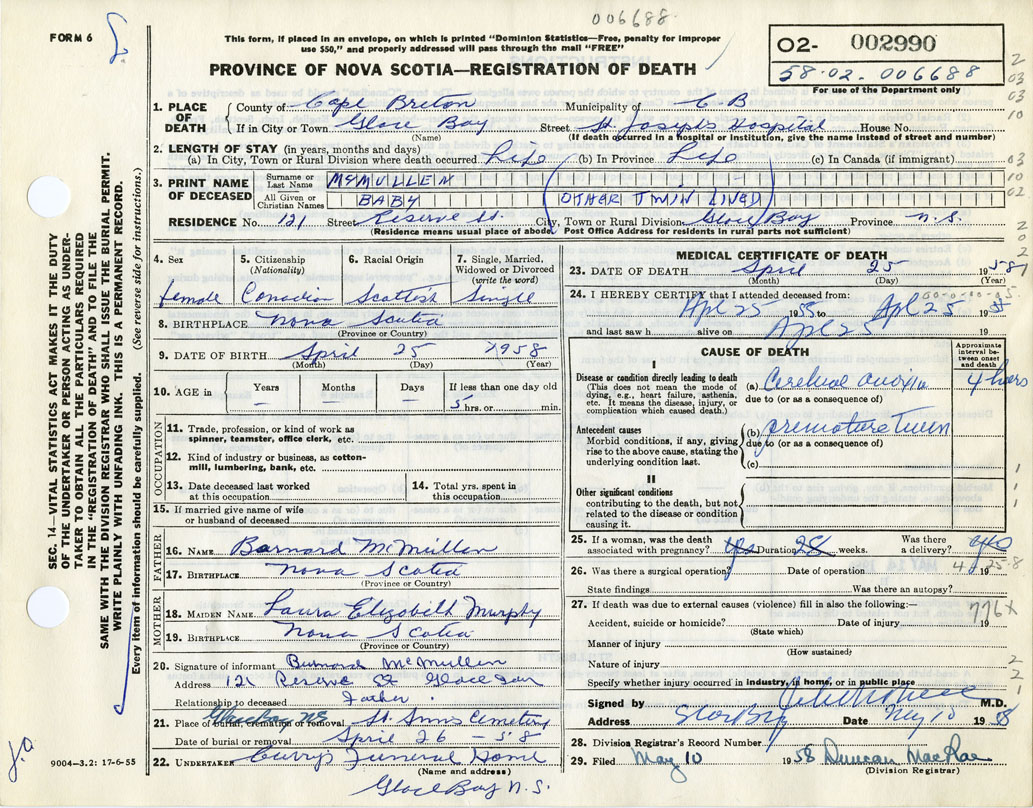 006688
FORM 6
This form, if placed in an envelope, on which is printed "Dominion Statistics—Free, penalty for improper
use $50," and properly addressed will pass through the mail "FREE"
PROVINCE OF NOVA SCOTIA—REGISTRATION OF DEATH
02- 002990
58-02-006688
For use of the Department only
1. PLACE OF DEATH
County of Cape Breton Municipality of C B
If in City or Town Glace Bay Street St Joseph's Hospital House No.
(Name) (If death occurred in a hospital or institution, give the name instead of street and number)
2. LENGTH OF STAY (in years, months and days)
(a) In City, Town or Rural Division where death occurred Life (b) In Province Life (c) In Canada (if immigrant)
3. PRINT NAME OF DECEASED
Surname or Last Name McMULLEN
All Given or Christian Names BABY (OTHER TWIN LIVED)
RESIDENCE No. 121 Street Reserve St. City, Town or Rural Division Glace Bay Province N.S.
(Residence means usual place of abode. Post Office Address for residents in rural parts not sufficient)
4. Sex Female
5. Citizenship (Nationality) Canadian
6. Racial Origin Scottish
7. Single, Married, Widowed or Divorced (write the word) Single
8. BIRTHPLACE Nova Scotia
(Province or Country)
9. DATE OF BIRTH April 25 1958
(Month) (Day) (Year)
10. AGE in Years — Months — Days — If less than one day old 5 hrs. or min.
OCCUPATION
11. Trade, profession, or kind of work as spinner, teamster, office clerk, etc.
12. Kind of industry or business, as cotton-mill, lumbering, bank, etc.
13. Date deceased last worked at this occupation
14. Total yrs. spent in this occupation
15. If married give name of wife or husband of deceased
FATHER
16. NAME Barnard McMullen
17. BIRTHPLACE Nova Scotia
(Province or Country)
MOTHER
18. MAIDEN NAME Laura Elizabeth Murphy
19. BIRTHPLACE Nova Scotia
(Province or Country)
20. Signature of informant Burnard McMullen
Address 121 Reserve St Glace Bay
Relationship to deceased Father
21. Place of burial, cremation or removal Glace Bay NS St. Anns Cemetery
Date of burial or removal April 26 - 58
22. UNDERTAKER Curry's Funeral Home
(Name and address)
Glace Bay N.S.
MEDICAL CERTIFICATE OF DEATH
23. DATE OF DEATH April 25 1958
(Month) (Day) (Year)
24. I HEREBY CERTIFY that I attended deceased from:
Apl 25 1955 to Apl 25 1955
and last saw h alive on Apl 25 19
CAUSE OF DEATH
Approximate interval between onset and death
I
Disease or condition directly leading to death
(This does not mean the mode of dying, e.g., heart failure, asthenia, etc. It means the disease, injury, or complication which caused death.)
(a) Cerebral anoxia 4 hours
due to (or as a consequence of)
Antecedent causes
Morbid conditions, if any, giving rise to the above cause, stating the underlying condition last.
(b) premature twin
due to (or as a consequence of)
(c)
II
Other significant conditions
contributing to the death, but not related to the disease or condition causing it.
25. If a woman, was the death associated with pregnancy? yes Duration 28 weeks. Was there a delivery? yes
26. Was there a surgical operation? Date of operation 4 25-8 19
State findings Was there an autopsy?
27. If death was due to external causes (violence) fill in also the following:—
776X
Accident, suicide or homicide? Date of injury 19
(State which)
Manner of injury
(How sustained)
Nature of injury
Specify whether injury occurred in industry, in home, or in public place
Signed by M.D.
Address Glace Bay Date May 10 1958
28. Division Registrar's Record Number
29. Filed May 10 1958 Duncan MacRae
(Division Registrar)
SEC. 14—VITAL STATISTICS ACT MAKES IT THE DUTY
OF THE UNDERTAKER OR PERSON ACTING AS UNDER-
TAKER TO OBTAIN ALL THE PARTICULARS REQUIRED
IN THE "REGISTRATION OF DEATH" AND TO FILE THE
SAME WITH THE DIVISION REGISTRAR WHO SHALL ISSUE THE BURIAL PERMIT.
WRITE PLAINLY WITH UNFADING INK. THIS IS A PERMANENT RECORD.
Every item of information should be carefully supplied. (See reverse side for instructions.)
9004—3.2: 17-6-55